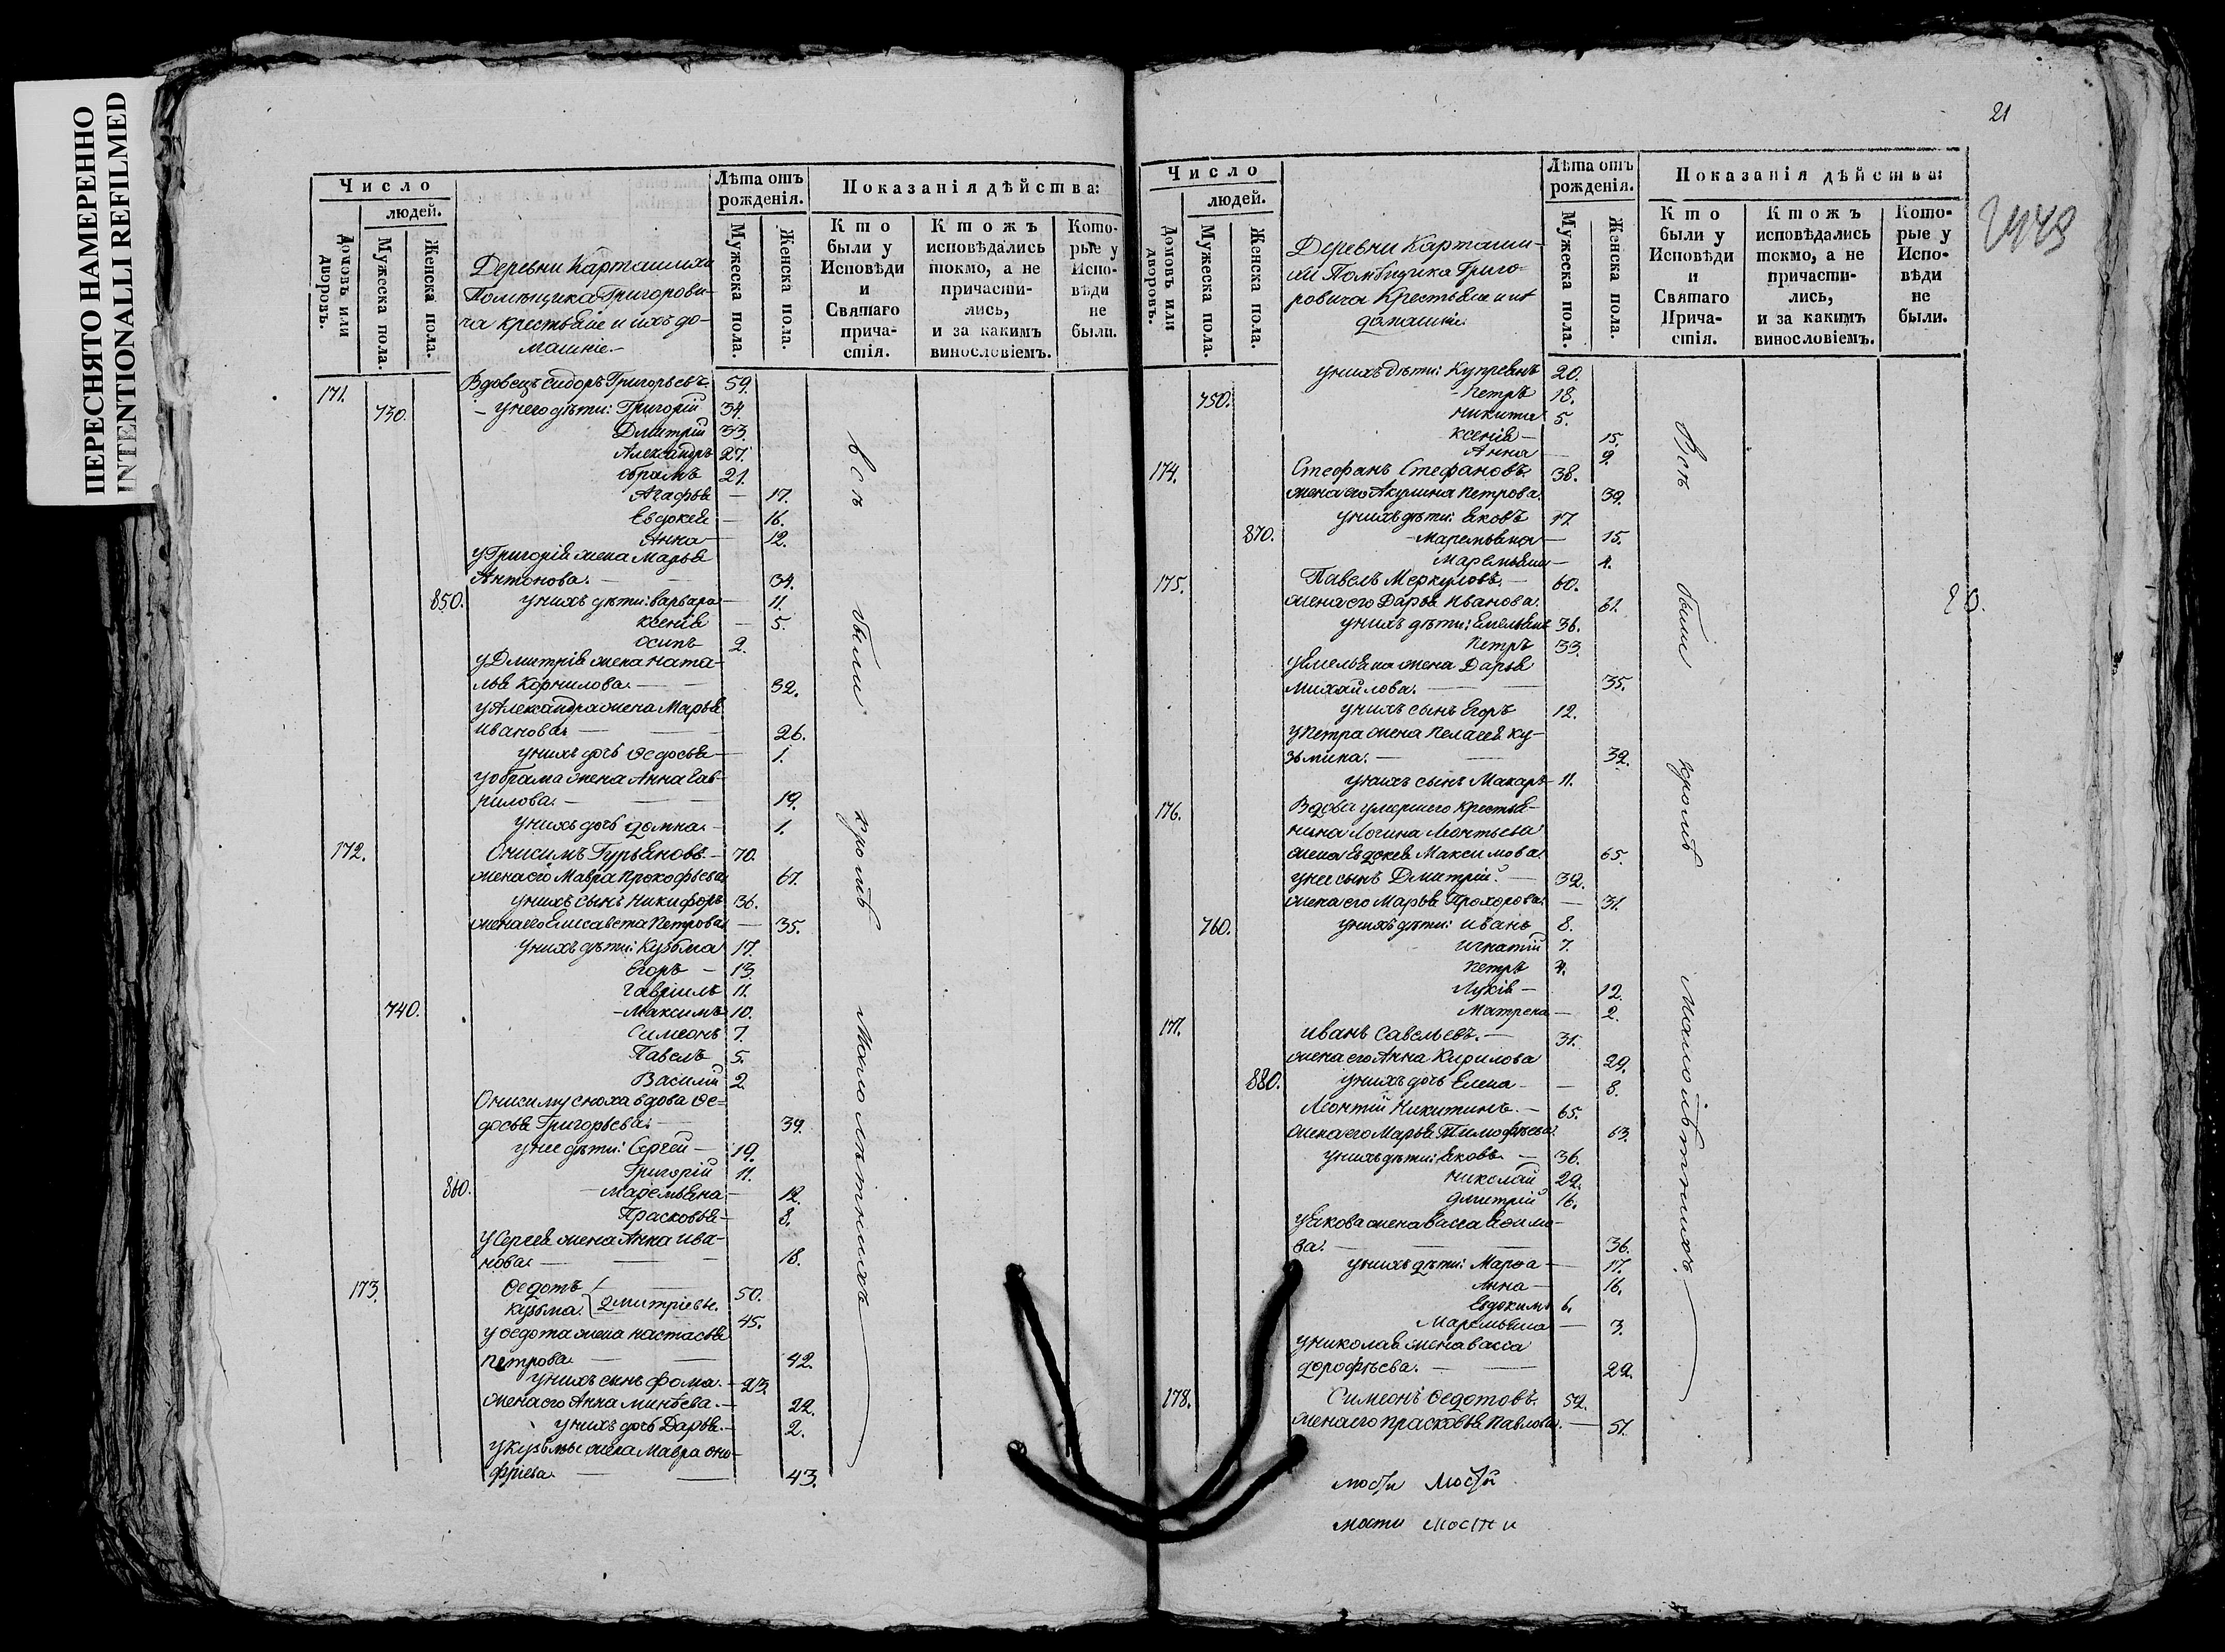 ПЕРЕСНЯТО НАМЕРЕННО
INTENTIONALLI REFILMED
Число
людей.
Домовъ или дворовъ.
Мужеска пола.
Женска пола.
Деревни Карташихи
Помѣщика Григорови-
ча крестьяне и ихъ до-
машніе.
Лѣта отъ
рожденія.
Мужеска пола.
Женска пола.
Показанія дѣйства:
Кто
были у
Исповѣди
и
Святаго
прича-
стія.
Ктожъ
исповѣдались
токмо, а не
причасти-
лись,
и за какимъ
винословіемъ.
Кото-
рые у
Испо-
вѣди
не
были.
171. Вдовецъ Сидоръ Григорьевъ. 59.
730. - у него дѣти: Григорій 34.
Дмитрій 33.
Александръ 27.
Обрамъ 21.
Агафья — 17.
Евдокея — 16.
Анна — 12.
у Григорія жена Марья
Антонова. — 34.
850. у нихъ дѣти: Варвара — 11.
Ксенія — 5.
Осипъ 2.
у Дмитрія жена Ната-
лья Корнилова. — 32.
у Александра жена Марья
Иванова. — 26.
у нихъ дочь Ѳедосья — 1.
у Обрама жена Анна Гав-
рилова. — 19.
у нихъ дочь Домна. — 1.
172. Онисимъ Гурьяновъ. — 70.
жена его Мавра Прокофьева 67.
у нихъ сынъ Никифоръ 36.
жена его Елисавета Петрова — 35.
у нихъ дѣти: Кузьма 17.
Егоръ — 13.
Гавріилъ 11.
740. - Максимъ 10.
Симеонъ 7.
Павелъ 5.
Василій 2.
Онисиму сноха вдова Ѳе-
досья Григорьева. — 39.
у нее дѣти: Сергей — 19.
Григорій 11.
860. - Маремьяна — 12.
Прасковья — 8.
у Сергея жена Анна Ива-
нова. — 18.
173. Ѳедотъ
Кузьма } Дмитріевы. 50.
45.
у Ѳедота жена Настасья
Петрова. — 42.
у нихъ сынъ Фома. — 23.
жена его Анна Минѣева. — 22.
у нихъ дочь Дарья. — 2.
у Кузьмы жена Мавра Оно-
фріева. — 43.
всѣ были кромѣ малолѣтнихъ
21
Число
людей.
Домовъ или дворовъ.
Мужеска пола.
Женска пола.
Деревни Карташи-
хи Помѣщика Григо-
ровича Крестьяне и их
домашніе.
Лѣта отъ
рожденія.
Мужеска пола.
Женска пола.
Показанія дѣйства:
Кто
были у
Исповѣди
и
Святаго
Прича-
стія.
Ктожъ
исповѣдались
токмо, а не
причасти-
лись,
и за какимъ
винословіемъ.
Кото-
рые у
Испо-
вѣди
не
были.
у нихъ дѣти: Купреянъ 20.
750. - Петръ 18.
Никита 5.
Ксенія — 15.
Анна — 9.
174. Стефанъ Стефановъ. 38.
жена его Акулина Петрова. 39.
у нихъ дѣти: Яковъ 17.
870. - Маремьяна — 15.
Маремьяна — 4.
175. Павелъ Меркуловъ. — 60.
жена его Дарья Иванова. 61.
у нихъ дѣти: Емельянъ 36.
Петръ 33.
у Емельяна жена Дарья
Михайлова. — 35.
у нихъ сынъ Егоръ 12.
у Петра жена Пелагея Ку-
зьмина. — 32.
у нихъ сынъ Макаръ — 11.
176. Вдова умершего крестья-
нина Логина Леонтьева
жена Евдокея Максимова. 65.
у нее сынъ Дмитрій. — 32.
жена его Марья Прохорова. — 31.
760. у нихъ дѣти: Иванъ 8.
Игнатій 7.
Петръ 4.
Лукія — 12.
Матрена — 2.
177. Иванъ Савельевъ. — 31.
жена его Анна Кирилова 29.
880. у нихъ дочь Елена — 8.
Леонтій Никитинъ. — 65.
жена его Марья Тимофѣева. 63.
у нихъ дѣти: Яковъ — 36.
Николай 22.
Дмитрій 16.
у Якова жена Васса Еѳимо-
ва. — 36.
у нихъ дѣти: Марѳа — 17.
Анна — 16.
Евдокимъ 6.
Маремьяна — 3.
у Николая жена Васса
Дорофѣева. — 22.
178. Симеонъ Ѳедотовъ. 52.
жена его Прасковья Павлова. — 51.
Всѣ были кромѣ малолѣтнихъ.